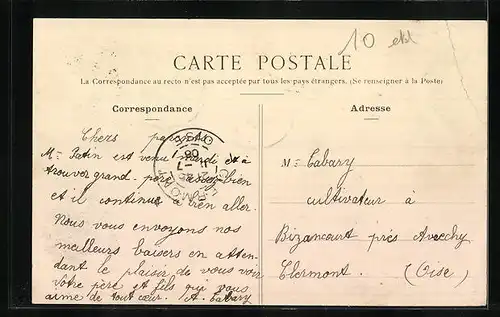 10
CARTE POSTALE
La Correspondance au recto n'est pas acceptée par tous les pays étrangers. (Se renseigner à la Poste)
Correspondance
Chers parents
Mr Patin est venu mardi et à
trouver grand père assez bien
et il continue à bien aller.
Nous vous envoyons nos
meilleurs baisers en atten-
dant le plaisir de vous voir
Votre père et fils qui vous
aime de tout cœur. A. Cabary
Adresse
Mr Cabary
cultivateur à
Bizancourt près Avrechy
Clermont. (Oise)